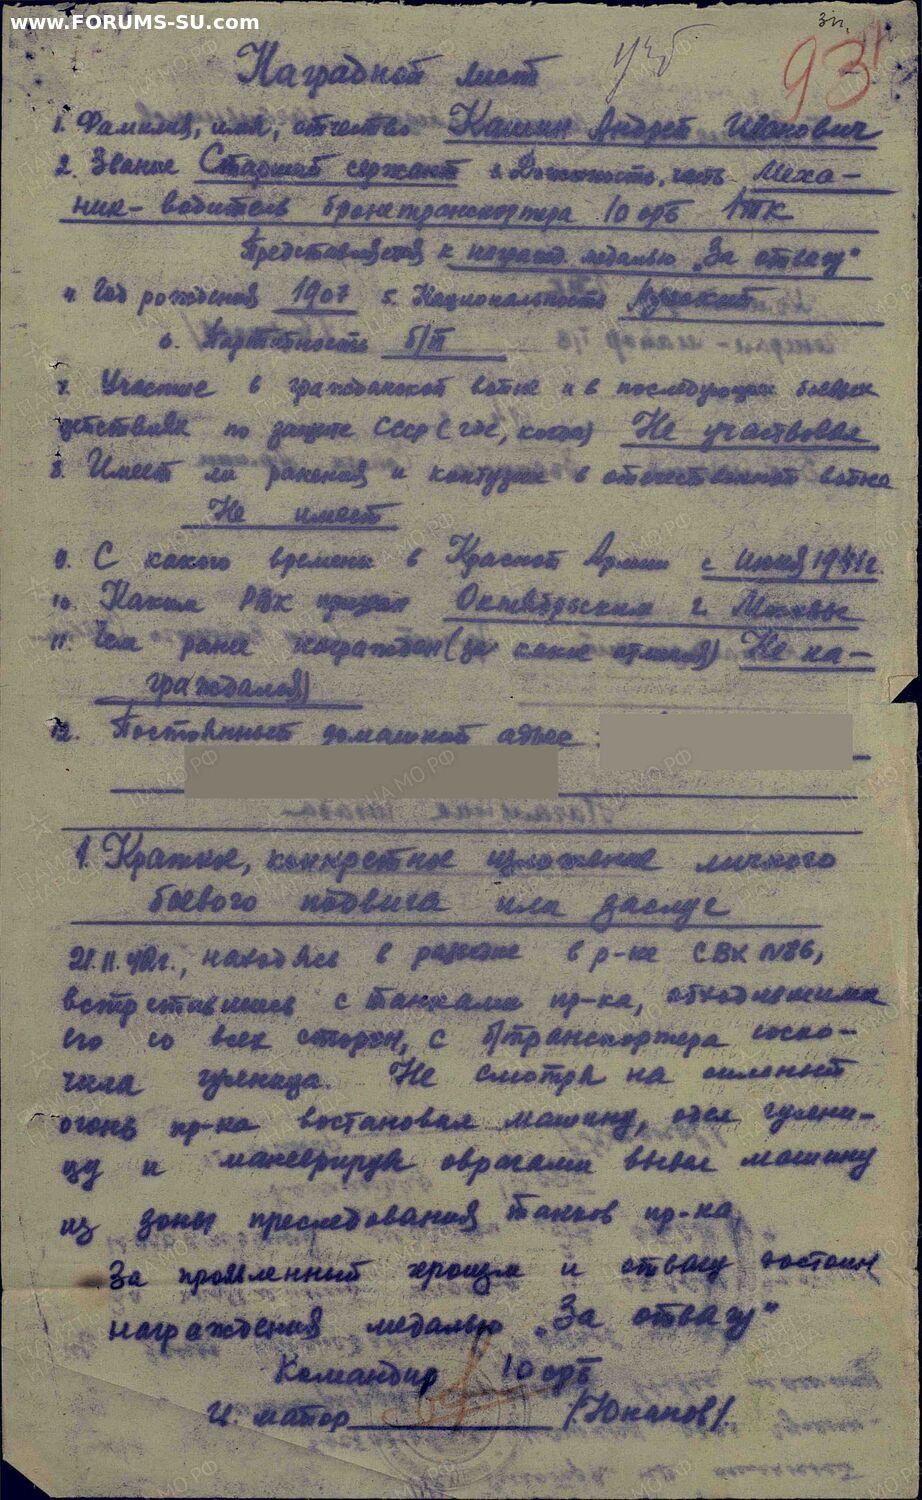 www.FORUMS-SU.com
93
Наградной лист
1. Фамилия, имя, отчество Кашин Андрей Иванович
2. Звание Старший сержант 3. Должность, часть Меха-
ник-водитель бронетранспортера 10 орб 1ТК
Представляется к награжд. медалью „За отвагу"
4. Год рождения 1907 5. Национальность Русский
6. Партийность б/п
7. Участие в гражданской войне и в последующих боевых
действиях по защите СССР (где, когда) Не участвовал
8. Имеет ли ранения и контузии в отечественной войне
Не имеет
9. С какого времени в Красной Армии с июня 1941г.
10. Каким РВК призван Октябрьским г. Москвы
11. Чем ранее награжден (за какие отличия) Не на-
граждался)
12. Постоянный домашний адрес
1. Краткое, конкретное изложение личного
боевого подвига или заслуг
21.11.42г., находясь в разведке в р-не СВХ №86,
встретившись с танками пр-ка, обходившими
его со всех сторон, с б/транспортера соско-
чила гусеница. Не смотря на сильный
огонь пр-ка востановил машину, одел гусени-
цу и маневрируя оврагами вывел машину
из зоны преследования танков пр-ка
За проявленный героизм и отвагу достоин
награждения медалью „За отвагу"
Командир 10 орб
майор /Юнаков/.